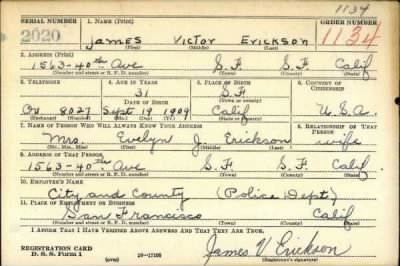 1134
SERIAL NUMBER 1. NAME (Print) ORDER NUMBER
2020 James Victor Erickson 1134
(First) (Middle) (Last)
2. ADDRESS (Print)
1563-40th Ave S.F. S.F. Calif
(Number and street or R. F. D. number) (Town) (County) (State)
3. TELEPHONE 4. AGE IN YEARS 5. PLACE OF BIRTH 6. COUNTRY OF CITIZENSHIP
31 S.F.
DATE OF BIRTH (Town or county)
Ov 8027 Sept 19 1909 Calif U.S.A.
(Exchange) (Number) (Mo.) (Day) (Yr.) (State or country)
7. NAME OF PERSON WHO WILL ALWAYS KNOW YOUR ADDRESS 8. RELATIONSHIP OF THAT PERSON
Mrs. Evelyn J. Erickson wife
(Mr., Mrs., Miss) (First) (Middle) (Last)
9. ADDRESS OF THAT PERSON
1563-40th Ave S.F. S.F. Calif
(Number and street or R. F. D. number) (Town) (County) (State)
10. EMPLOYER'S NAME
City and County (Police Dept.)
11. PLACE OF EMPLOYMENT OR BUSINESS
San Francisco Calif
(Number and street or R. F. D. number) (Town) (County) (State)
I AFFIRM THAT I HAVE VERIFIED ABOVE ANSWERS AND THAT THEY ARE TRUE.
REGISTRATION CARD James V Erickson
D. S. S. Form 1 (over) 16-17105 (Registrant's signature)